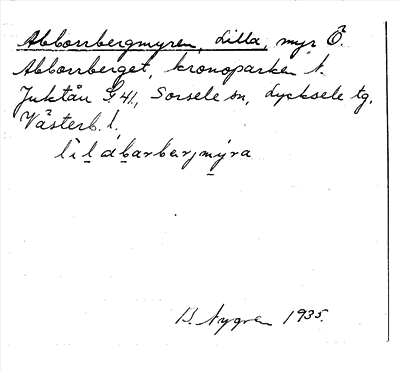 Abborrbergmyren, Lilla, myr Ö.
Abborrberget, kronoparken 1.
Juktån G 41, Sorsele sn, Lycksele tg,
Västerb. l.
lìl abarbærjmýra
B. Nygren 1935.